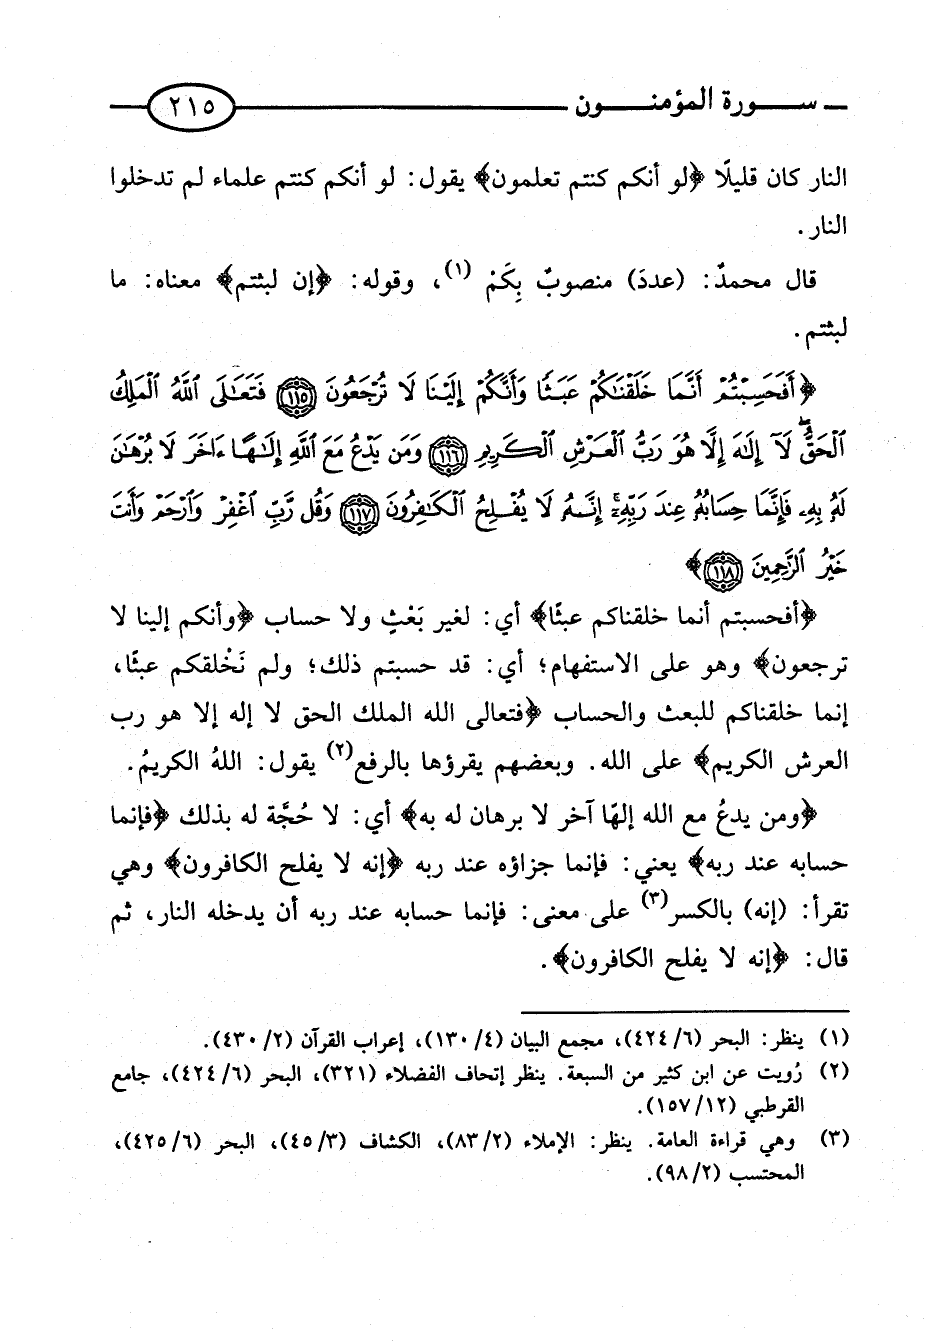 سورة المؤمنون ٢١٥
النار كان قليلًا ﴿لو أنكم كنتم تعلمون﴾ يقول: لو أنكم كنتم علماء لم تدخلوا
النار.
قال محمدٌ: (عددَ) منصوبٌ بِكَمْ (١)، وقوله: ﴿إن لبثتم﴾ معناه: ما
لبثتم.
﴿أَفَحَسِبْتُمْ أَنَّمَا خَلَقْنَاكُمْ عَبَثًا وَأَنَّكُمْ إِلَيْنَا لَا تُرْجَعُونَ ١١٥ فَتَعَالَى اللَّهُ الْمَلِكُ
الْحَقُّ ۖ لَا إِلَهَ إِلَّا هُوَ رَبُّ الْعَرْشِ الْكَرِيمِ ١١٦ وَمَن يَدْعُ مَعَ اللَّهِ إِلَٰهًا ءَاخَرَ لَا بُرْهَٰنَ
لَهُ بِهِ فَإِنَّمَا حِسَابُهُ عِندَ رَبِّهِ ۚ إِنَّهُ لَا يُفْلِحُ الْكَٰفِرُونَ ١١٧ وَقُل رَّبِّ اغْفِرْ وَارْحَمْ وَأَنتَ
خَيْرُ الرَّٰحِمِينَ ١١٨﴾
﴿أفحسبتم أنما خلقناكم عبثًا﴾ أي: لغير بَعْثٍ ولا حساب ﴿وأنكم إلينا لا
ترجعون﴾ وهو على الاستفهام؛ أي: قد حسبتم ذلك؛ ولم نَخْلقكم عبثًا،
إنما خلقناكم للبعث والحساب ﴿فتعالى الله الملك الحق لا إله إلا هو رب
العرش الكريم﴾ على الله. وبعضهم يقرؤها بالرفع(٢) يقول: اللهُ الكريمُ.
﴿ومن يدعُ مع الله إلهًا آخر لا برهان له به﴾ أي: لا حُجَّة له بذلك ﴿فإنما
حسابه عند ربه﴾ يعني: فإنما جزاؤه عند ربه ﴿إنه لا يفلح الكافرون﴾ وهي
تقرأ: (إنه) بالكسر(٣) على معنى: فإنما حسابه عند ربه أن يدخله النار، ثم
قال: ﴿إنه لا يفلح الكافرون﴾.
(١) ينظر: البحر (٤٢٤/٦)، مجمع البيان (١٣٠/٤)، إعراب القرآن (٤٣٠/٢).
(٢) رُويت عن ابن كثير من السبعة. ينظر إتحاف الفضلاء (٣٢١)، البحر (٤٢٤/٦)، جامع
القرطبي (١٥٧/١٢).
(٣) وهي قراءة العامة. ينظر: الإملاء (٨٣/٢)، الكشاف (٤٥/٣)، البحر (٤٢٥/٦)،
المحتسب (٩٨/٢).